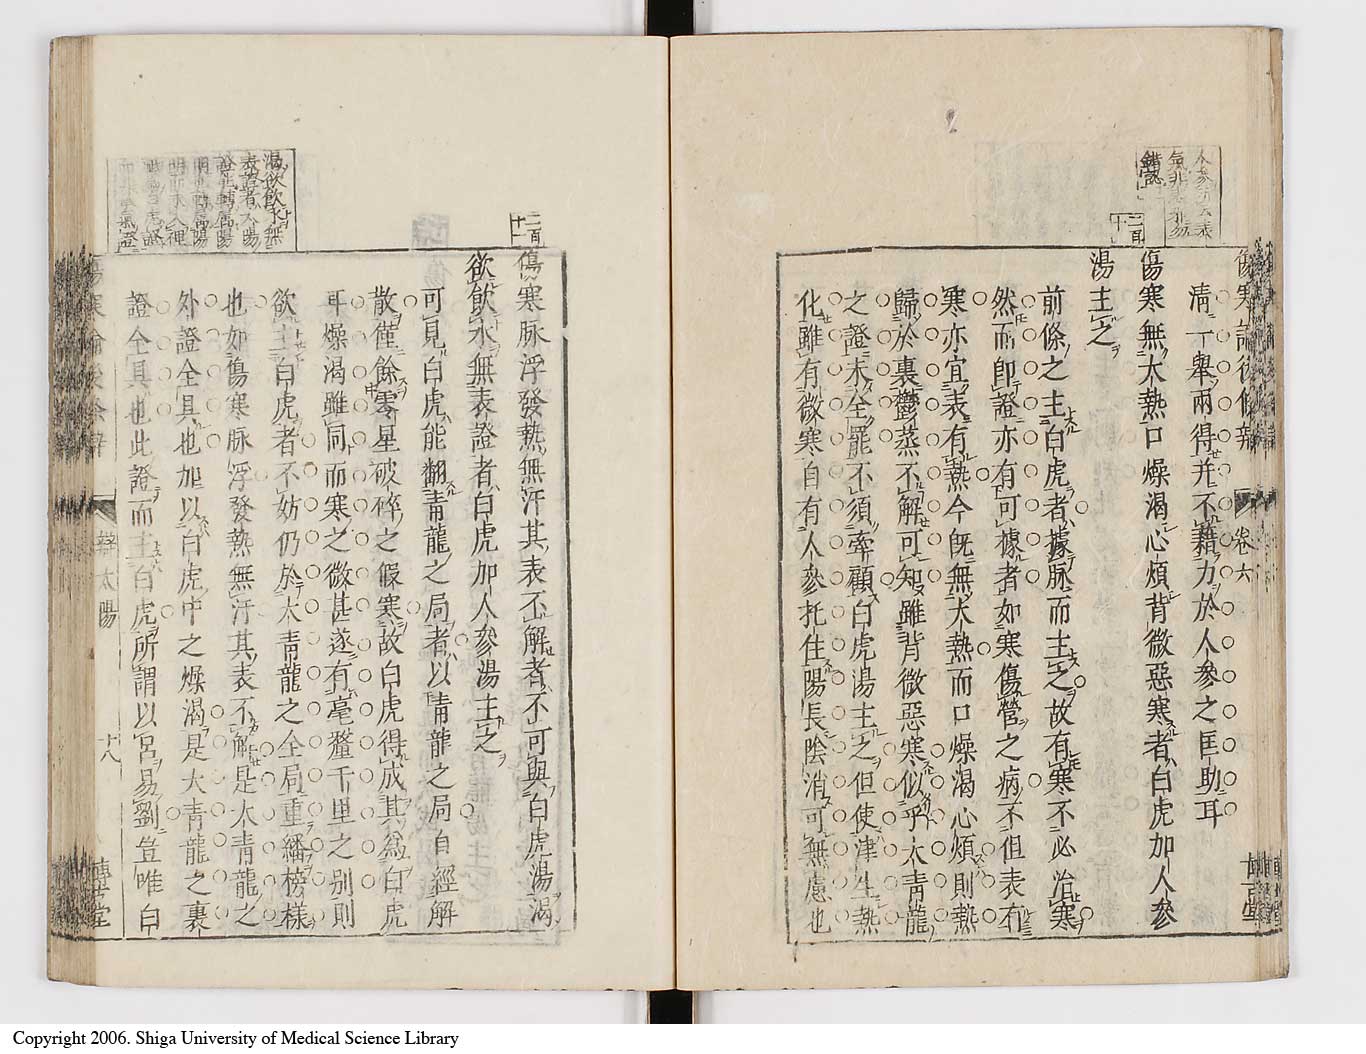 傷寒論後條辨
卷六
清一舉兩得并不藉力於人參之匡助耳
二百
十
傷寒無大熱口燥渴心煩背微惡寒者白虎加人參
湯主之
前條之主白虎者據脉而主之故有寒不必治寒
然而即證亦有可據者如寒傷營之病不但表有
寒亦宜表有熱今既無大熱而口燥渴心煩則熱
歸於裏鬱蒸不解可知雖背微惡寒似乎太青龍
之證未全罷不須牽顧白虎湯主之但使津生熱
化雖有微寒自有人參托住陽長陰消可無慮也
二百
十一
傷寒脉浮發熱無汗其表不解者不可與白虎湯渴
欲飲水無表證者白虎加人參湯主之
可見白虎能翻青龍之局者以青龍之局自經解
散僅餘零星破碎之假寒故白虎得成其爲白虎
耳燥渴雖同而寒之微甚遂有毫釐千里之別則
欲主白虎者不妨仍於太青龍之全局重繙榜樣
也如傷寒脉浮發熱無汗其表不解是太青龍之
外證全具也加以白虎中之燥渴是大青龍之裏
證全具也此證而主白虎所謂以宮易劉豈唯白
傷寒論後條辨
辨太陽
十八
博古堂
渴欲飲水無
表證者太陽
證能轉屬陽
Copyright 2006. Shiga University of Medical Science Library